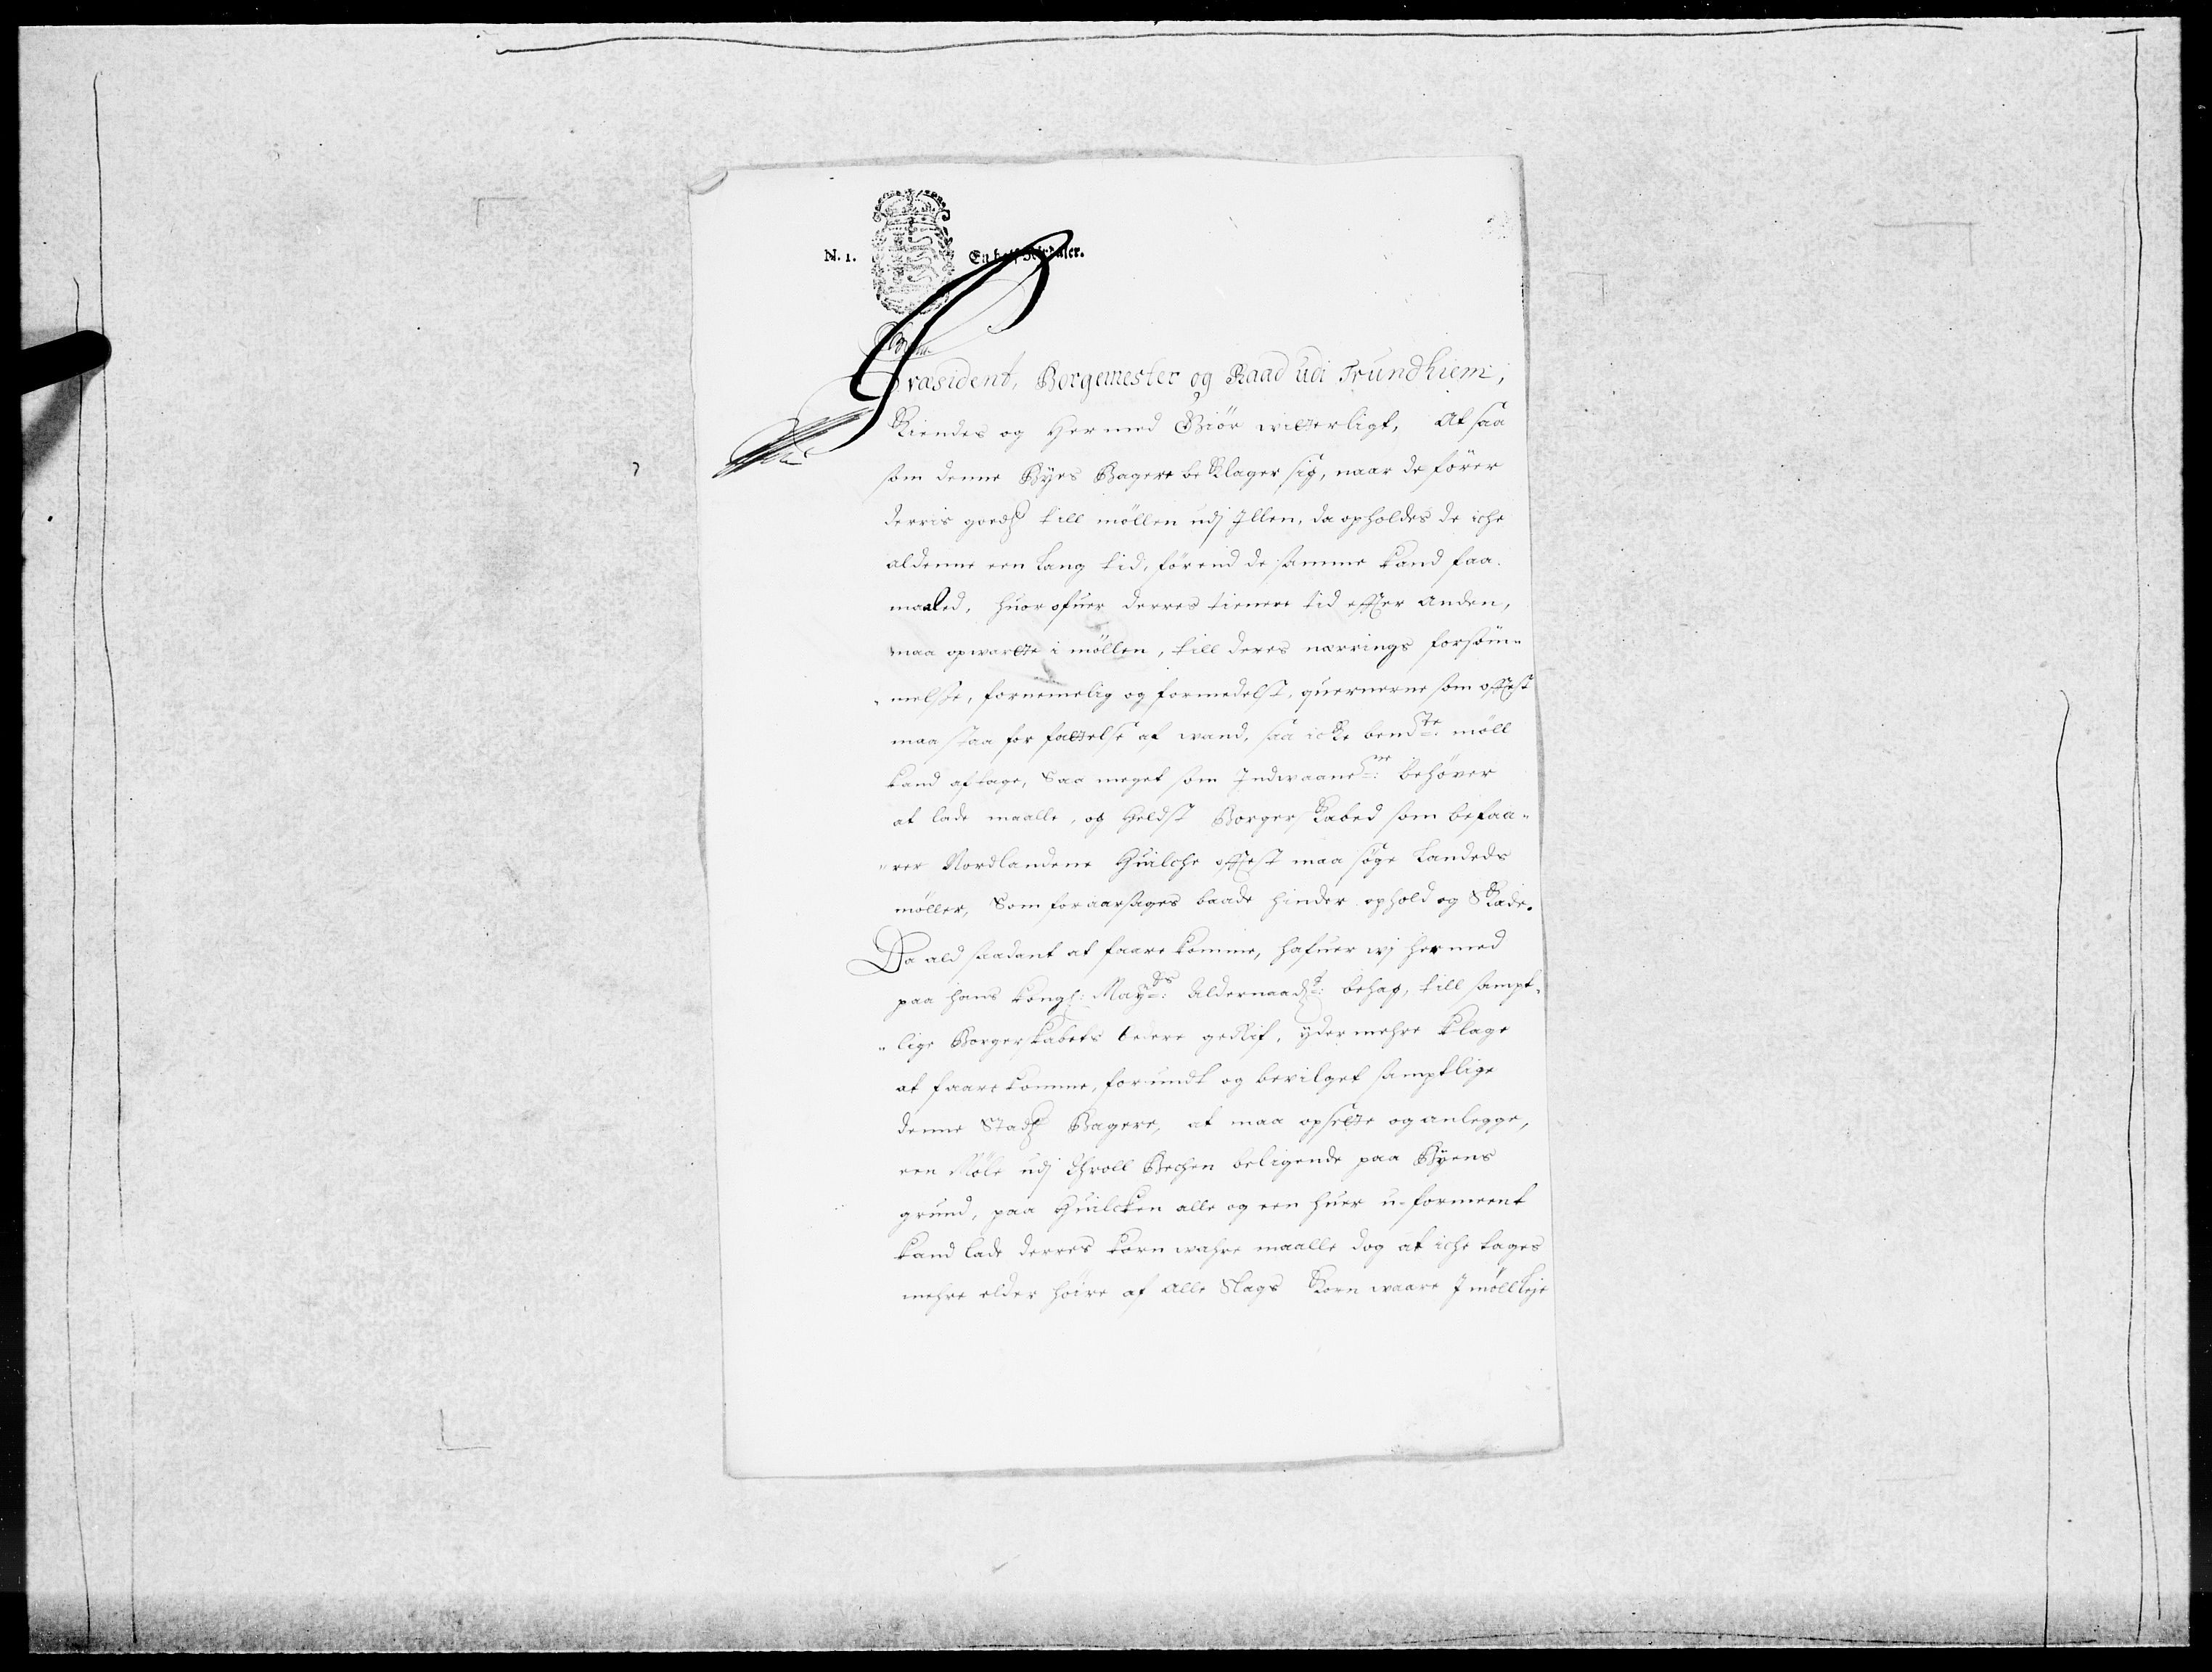 N. 1. En halff Rixdaler.
Præsident, Borgemester og Raad udi Trundhiem,
Kiendes og Hermed Giör witterligt, At saa
som denne Byes Bagere beKlager sig, naar de förer
derris goeds till möllen udj Jllen, da opholdes de iche
aldenne een Lang tid, förend de samme kand faa
maaled, huor ofuer derres tienere tid effter anden,
maa opwartte i möllen, till deres nærrings forsöm-
-melse, fornemelig og formedelst, quernerne som offtest
maa staa for fattelse af wand, saa icke bend:te möll
kand aftage, Saa meget som Indwaane:rne behöver
at lade maalle, og Heldst BorgersKabed som befaa-
-rer Nordlandene Huilche offtest maa söge Landeds
möller, Som foraarsages baade hinder ophold og SKade.
Da ald saadant at faarekomme, hafuer wj hermed
paa hans kongl: May:ds Aldernaad:st behag, till sampt-
-lige Borgerskabets bedere gedkif, ÿdermehre Klage
at faarekomme, forundt og bevilget samptlige
denne Stads Bagere, at maa opsette og anlegge,
een Möle udj Throll Bechen beligende paa Byens
grund, paa Huilcken alle og een huer u-formeent
kand lade derres kornwahre maalle dog at iche tages
mehre elder höire af alle Slags Korn waare J möll leje